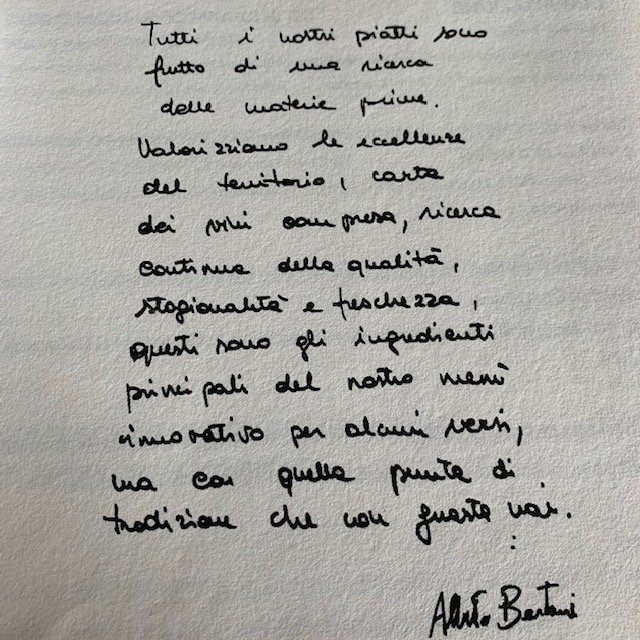 Tutti i nostri piatti sono
frutto di una ricerca
delle materie prime.
Valorizziamo le eccellenze
del territorio, carta
dei vini compresa, ricerca
continua della qualità,
stagionalità e freschezza,
questi sono gli ingredienti
principali del nostro menù
innovativo per alcuni versi,
ma con quella punta di
tradizione che non guasta mai.
:
Alberto Bertani